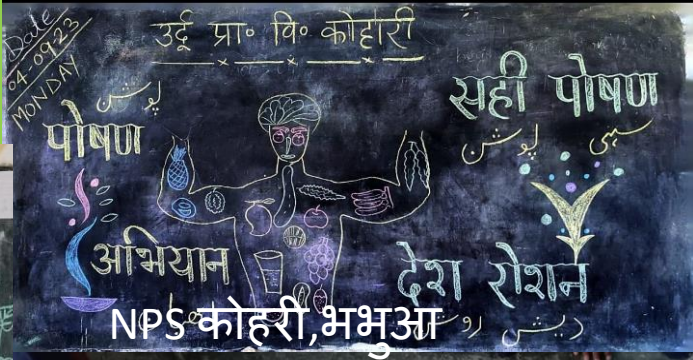 Date
04.09.23
MONDAY
उर्दू प्रा० वि० कोहारी
پوشن
पोषण
अभियान
सही पोषण
سہی پوشن
देश रोशन
دیش روشن
NPS कोहरी,भभुआ